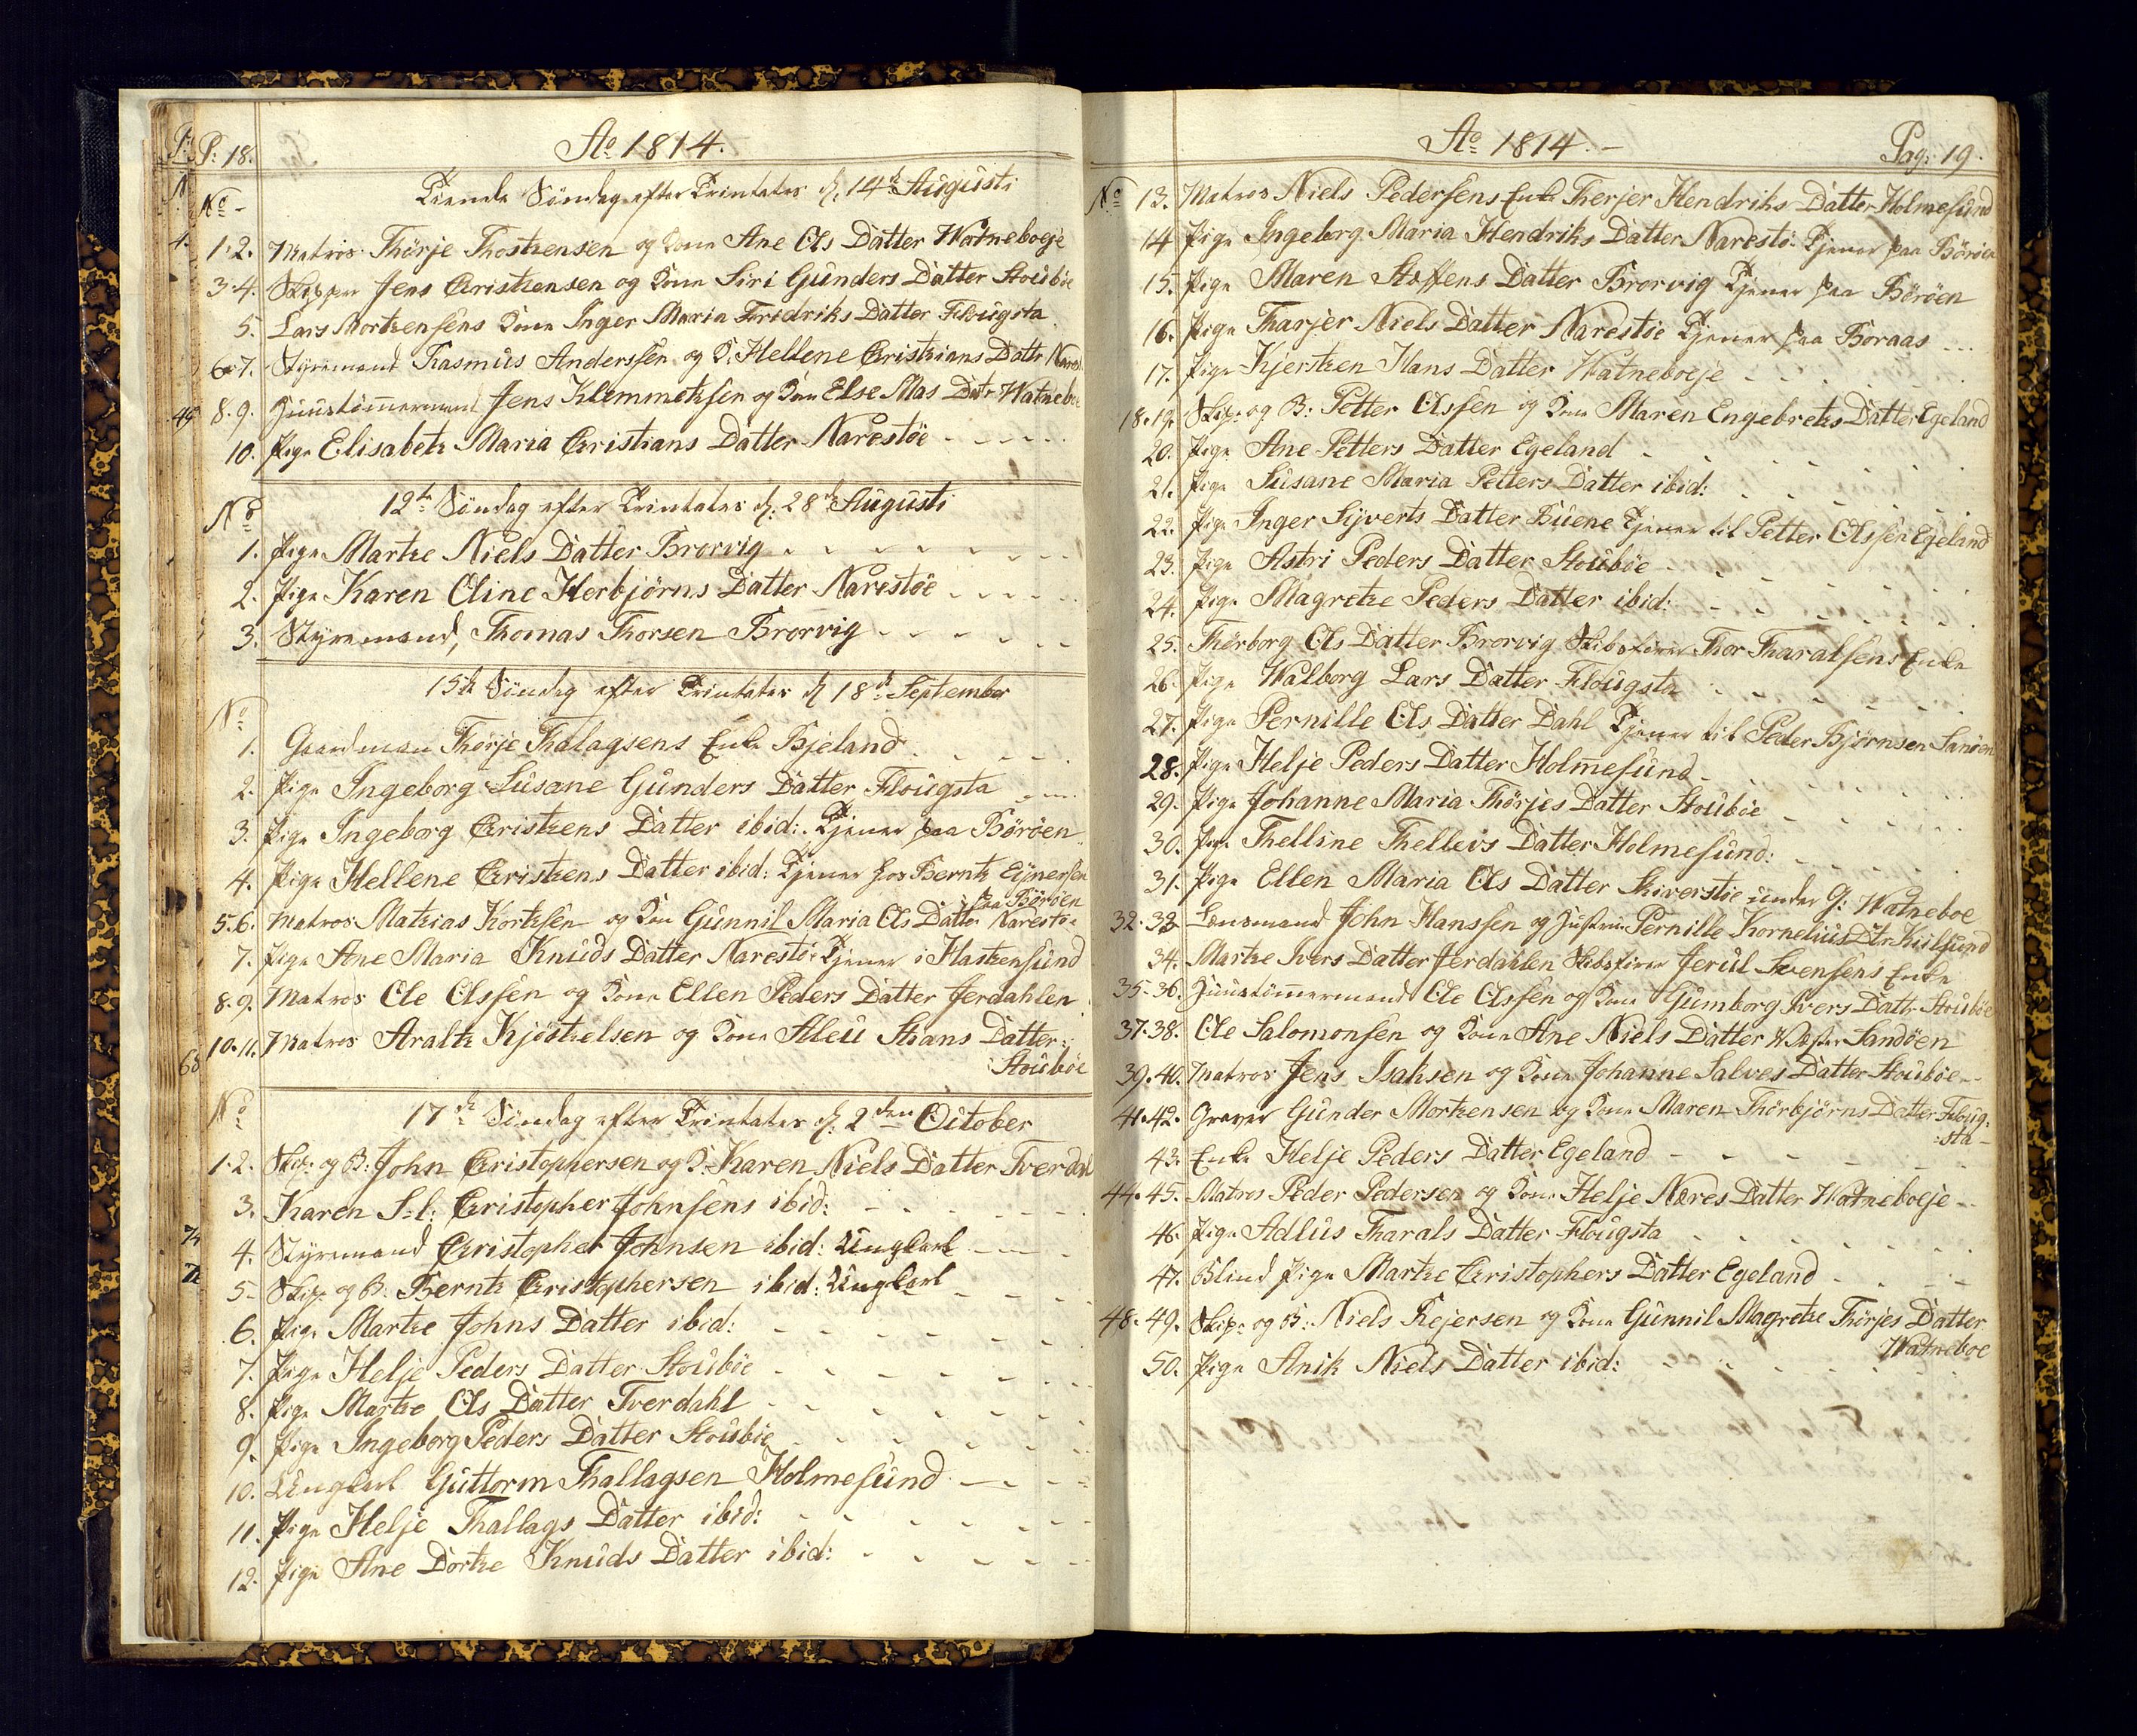 P: 18.
Ao 1814.
Tiende Söndag efter Trinitates d. 14de Augusti
No -
1.2. Matros Thörje Thostensen og Kone Ane Ols Datter Watneboeje
3.4. Skipper Jens Christensen og Kone Siri Gunders Datter Stouböe
5. Lars Mortensens Kone Inger Maria Fridriks Datter Flougsta
6.7. Styremand Rasmus Anderssen og K. Hellene Christians Dattr
8.9. Huustömmermand Jens Klemmetsen og Kone Else Mas Datr Watneboe
10. Pige Elisabeth Maria Christians Datter Narestöe
No
12te Söndag efter Trinitates d. 28de Augusti
1. Pige Marthe Niels Datter Brorvig
2. Pige Karen Oline Herbjörns Datter Narestöe
3. Styremand, Thomas Thorsen Brorvig
15de Söndag efter Trinitates d 18de September
No
1. Gaardman Thorje Thalagsens Enke Bjeland
2. Pige Ingeborg Susane Gunders Datter Flougsta
3. Pige Ingeborg Christens Datter ibid: Tjener paa Böröen
4. Pige Hellene Christens Datter ibid: Tjener hos Bernth Ejnersen
paa Böröen
5.6. Matros Mathias Kortsen og Kone Gunnil Maria Ols Datter Narestöe
7. Pige Ane Maria Knuds Datter Narestöe Tjener i Hastensund
8.9. Matros Ole Olssen og Kone Ellen Peders Datter Jerdahlen
10.11. Matros Aralth Kjöstelsen og Kone Aleu Stians Datter
Stouböe
No
17de Söndag efter Trinitates d. 2den October
1.2. Skip: og B: John Christophersen og K. Karen Niels Datter Tverdal
3. Karen S:l: Christopher Johnsens ibid:
4. Styremand Christopher Johnsen ibid: Ungkarl
5 Skip: og B: Bernth Christophersen ibid: Ungkarl
6. Pige Marthe Johns Datter ibid:
7. Pige Helje Peders Datter Stouböe
8. Pige Marthe Ols Datter Tverdahl
9. Pige Ingeborg Peders Datter Stouböe
10. Ungkarl Guttorm Thallagsen Holmesund
11. Pige Helje Thallags Datter ibid:
12. Pige Ane Dorthe Knuds Datter ibid:
Ao 1814.
Pag: 19.
No 13. Matros Niels Pedersens Enke Therjer Hendriks Datter Holmesund
14 Pige Ingeborg Maria Hendriks Datter Narestö: Tjener paa Böröen
15. Pige Maren Steffens Datter Brorvig Tjener paa Böröen
16. Pige Tharjer Niels Datter Narestöe Tjener paa Boraas
17. Pige Kjersten Hans Datter Watneboeje
18.19. Skip: og B: Petter Olssen og Kone Maren Engebreths Datter Egeland
20. Pige Ane Petters Datter Egeland
21. Pige Susane Maria Petters Datter ibid:
22. Pige Inger Sijverts Datter Buene Tjener til Petter Olssen Egeland
23. Pige Astri Peders Datter Stouböe
24. Pige Magrethe Peders Datter ibid:
25. Thorborg Ols Datter Brorvig Skibsförer Thor Tharalsens Enke
26. Pige Walborg Lars Datter Flougsta
27. Pige Pernille Ols Datter Dahl Tjener til Peder Bjørnsen Sanöen
28. Pige Helje Peders Datter Holmesund
29. Pige Johanne Maria Thörjes Datter Stouböe
30. Pige Thelline Thellevs Datter Holmesund:
31. Pige Ellen Maria Ols Datter Skiverstöe under G: Watneboe
32.33 Lensmand John Hanssen og Hustrue Pernille Kornelius Dtr Kiilsund
34. Marthe Ivers Datter Jerdahlen Skibsförer Jerul Svensens Enke
35-36. Huustömmermand Ole Olssen og Kone Gumborg Ivers Dattr Stouböe
37.38. Ole Salomonsen og Kone Ane Niels Datter Wæster Sandöen
39.40. Matros Jens Isaksen og Kone Johanne Salves Datter Stouböe
41.42. Graver Gunder Mortensen og Kone Maren Thörbjörns Datter Floug:
:sta
43. Enke Helje Peders Datter Egeland
44.45. Matros Peder Pedersen og Kone Helje Næres Datter Watneboeje
46. Pige Adlus Tharals Datter Flougsta
47. Blind Pige Marthe Christophers Datter Egeland
48.49. Skip: og B: Niels Rejersen og Kone Gunnil Magrethe Thörjes Datter
Watneboe
50. Pige Anik Niels Datter ibid: